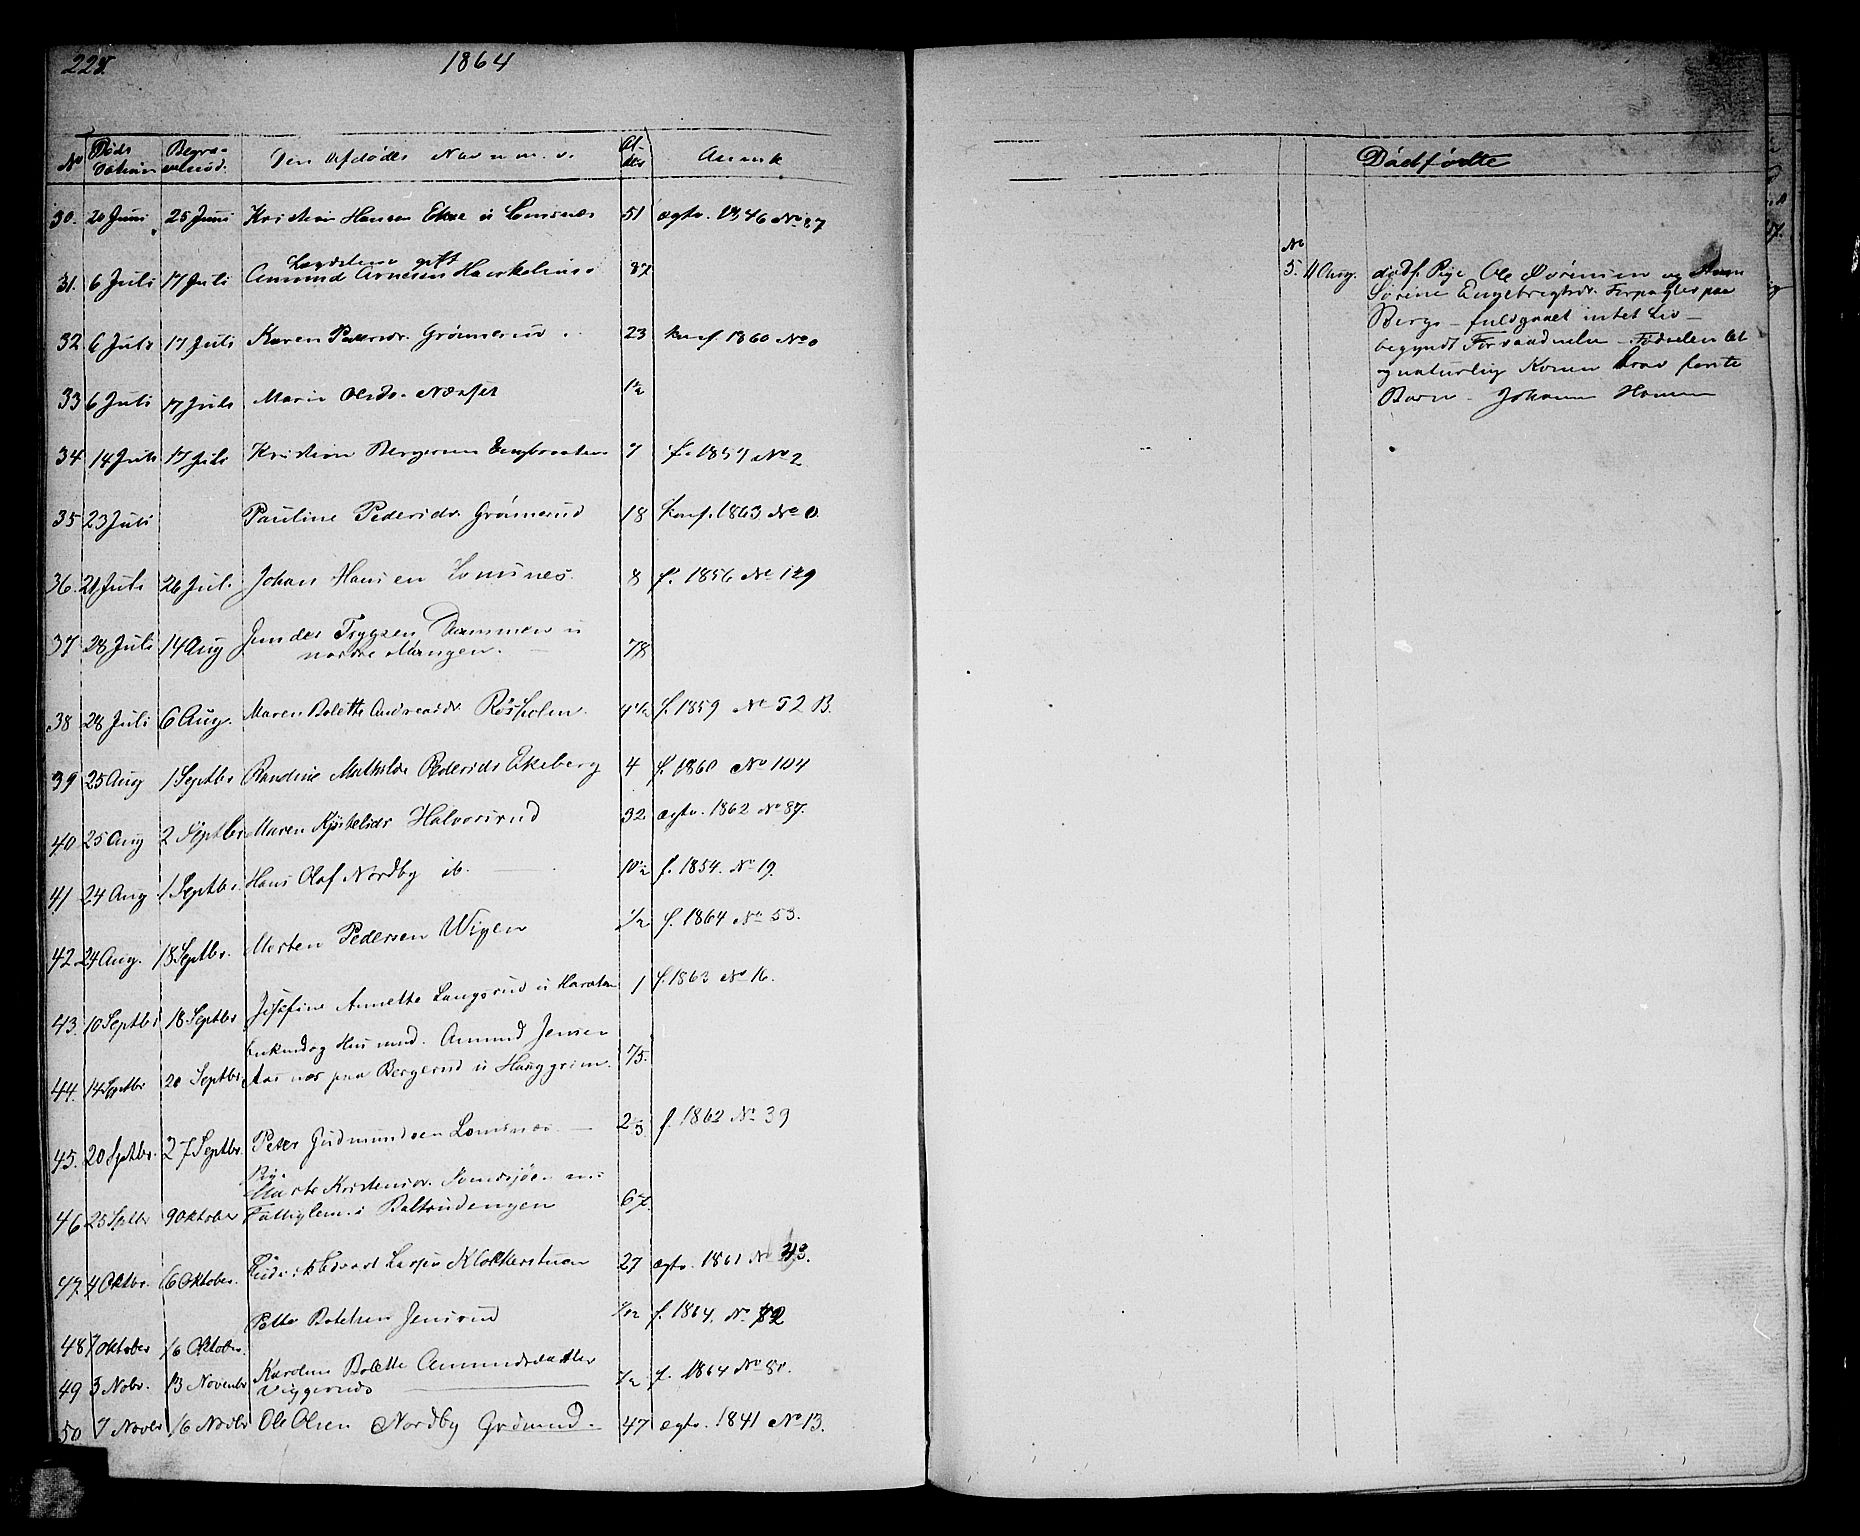 1864
No Døds Datum Begravelsesd. Den Afdødes Navn m. v. Alder Anmk
30. 20 Juni 25 Juni Kristian Hansen Ekse u Lomsnæs 51 ægtv. 1846 No 87
Lægdslem gift
31. 6 Juli 17 Juli Amund Arnesen Haerkelsrud 87
32 6 Juli 17 Juli Karen Pedersdr. Grønnerud 23 konf. 1860 No 0
33 6 Juli 17 Juli Marie Olsdr. Næsset 1½
34 14 Juli 17 Juli Kristian Bergersen Engbraaten 7 f. 1857 No 2
35 23 Juli Pauline Pedersdr. Grønnerud 18 konf. 1863 No 0.
36. 21 Juli 26 Jul. Johan Hansen Lomsnes. 8 f. 1856 No 129
37 28 Juli 14 Aug Trygsen Dammen u
nordre Mangen. 78
38 28 Juli 6 Aug. Maren Bolette Andreasdr. Røsholm. 4½ f. 1859 No 52 B.
39 25 Aug 1 Septbr Randine Mathilde Pedersdr Ekeberg 4 f. 1860 No 104
40 25 Aug 2 Septbr Maren Halvorsrud 32 ægtv. 1862 No 87.
41 24 Aug 1 Septbr. Hans Olaf Nordby ib. 10½ f. 1854. No 19.
42. 24 Aug. 18 Septbr. Morten Pedersen Wigen ½ f. 1864 No 53.
43. 10 Septbr 18 Septbr Josefine Annette Langsrud u 1 f. 1863 No 16.
Husmand. Amund Jensen
44. 14 Septbr 20 Septbr. Aasnæs paa Bergerud u Hauggrim. 75.
45. 20 Septbr. 27 Septbr. Peter Gudmundsen Lomsnæs f. 1862 No 39
Pige
Marte Kristensdr.
46 25 Septbr 9 Oktober Fattiglem i Baltrudengen 67.
47. 4 Oktbr. 16 Oktober. Ludvik Edvard Larsen Klokkerstuen 27 ægtv. 1861 No 33.
48 7 Oktober 16 Oktober. Jensrud f. 1864. No 82
49 3 Nobr. 13 Novembr Karoline Bolette Amundsdatter
Viggerud ½ f. 1864 No 80.
50 7 Novbr 16 Novbr Ole Olsen Nordby 47 ægtv. 1841 No 13.
Dødfødte
No
5. 4 Aug. dødf. Pige Ole Sørensen og
Sørine Engebrigtsdr. Forpagter paa
Berge – fuldgaaet intet Liv –
begyndt Forraadnelse – Fødselen let
og naturlig Konen femte
Barn – Johanne Hansen